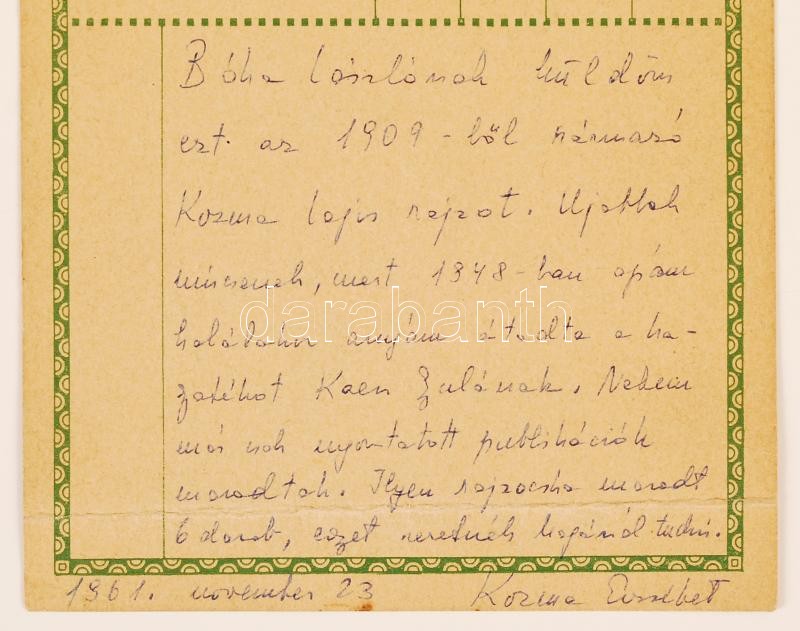 Bóka Lászlónak küldöm
ezt az 1909-ből származó
Kozma Lajos rajzot. Ujabbak
nincsenek, mert 1948-ban apám
halálakor anyám átadta a ha-
gatékot Kaesz Gyulának. Nekem
már csak nyomtatott publikációk
maradtak. Ilyen rajzocska maradt
6 darab, ezeket szeretnék magánál tudni.
1961. november 23 Kozma Erzsébet
darabanth